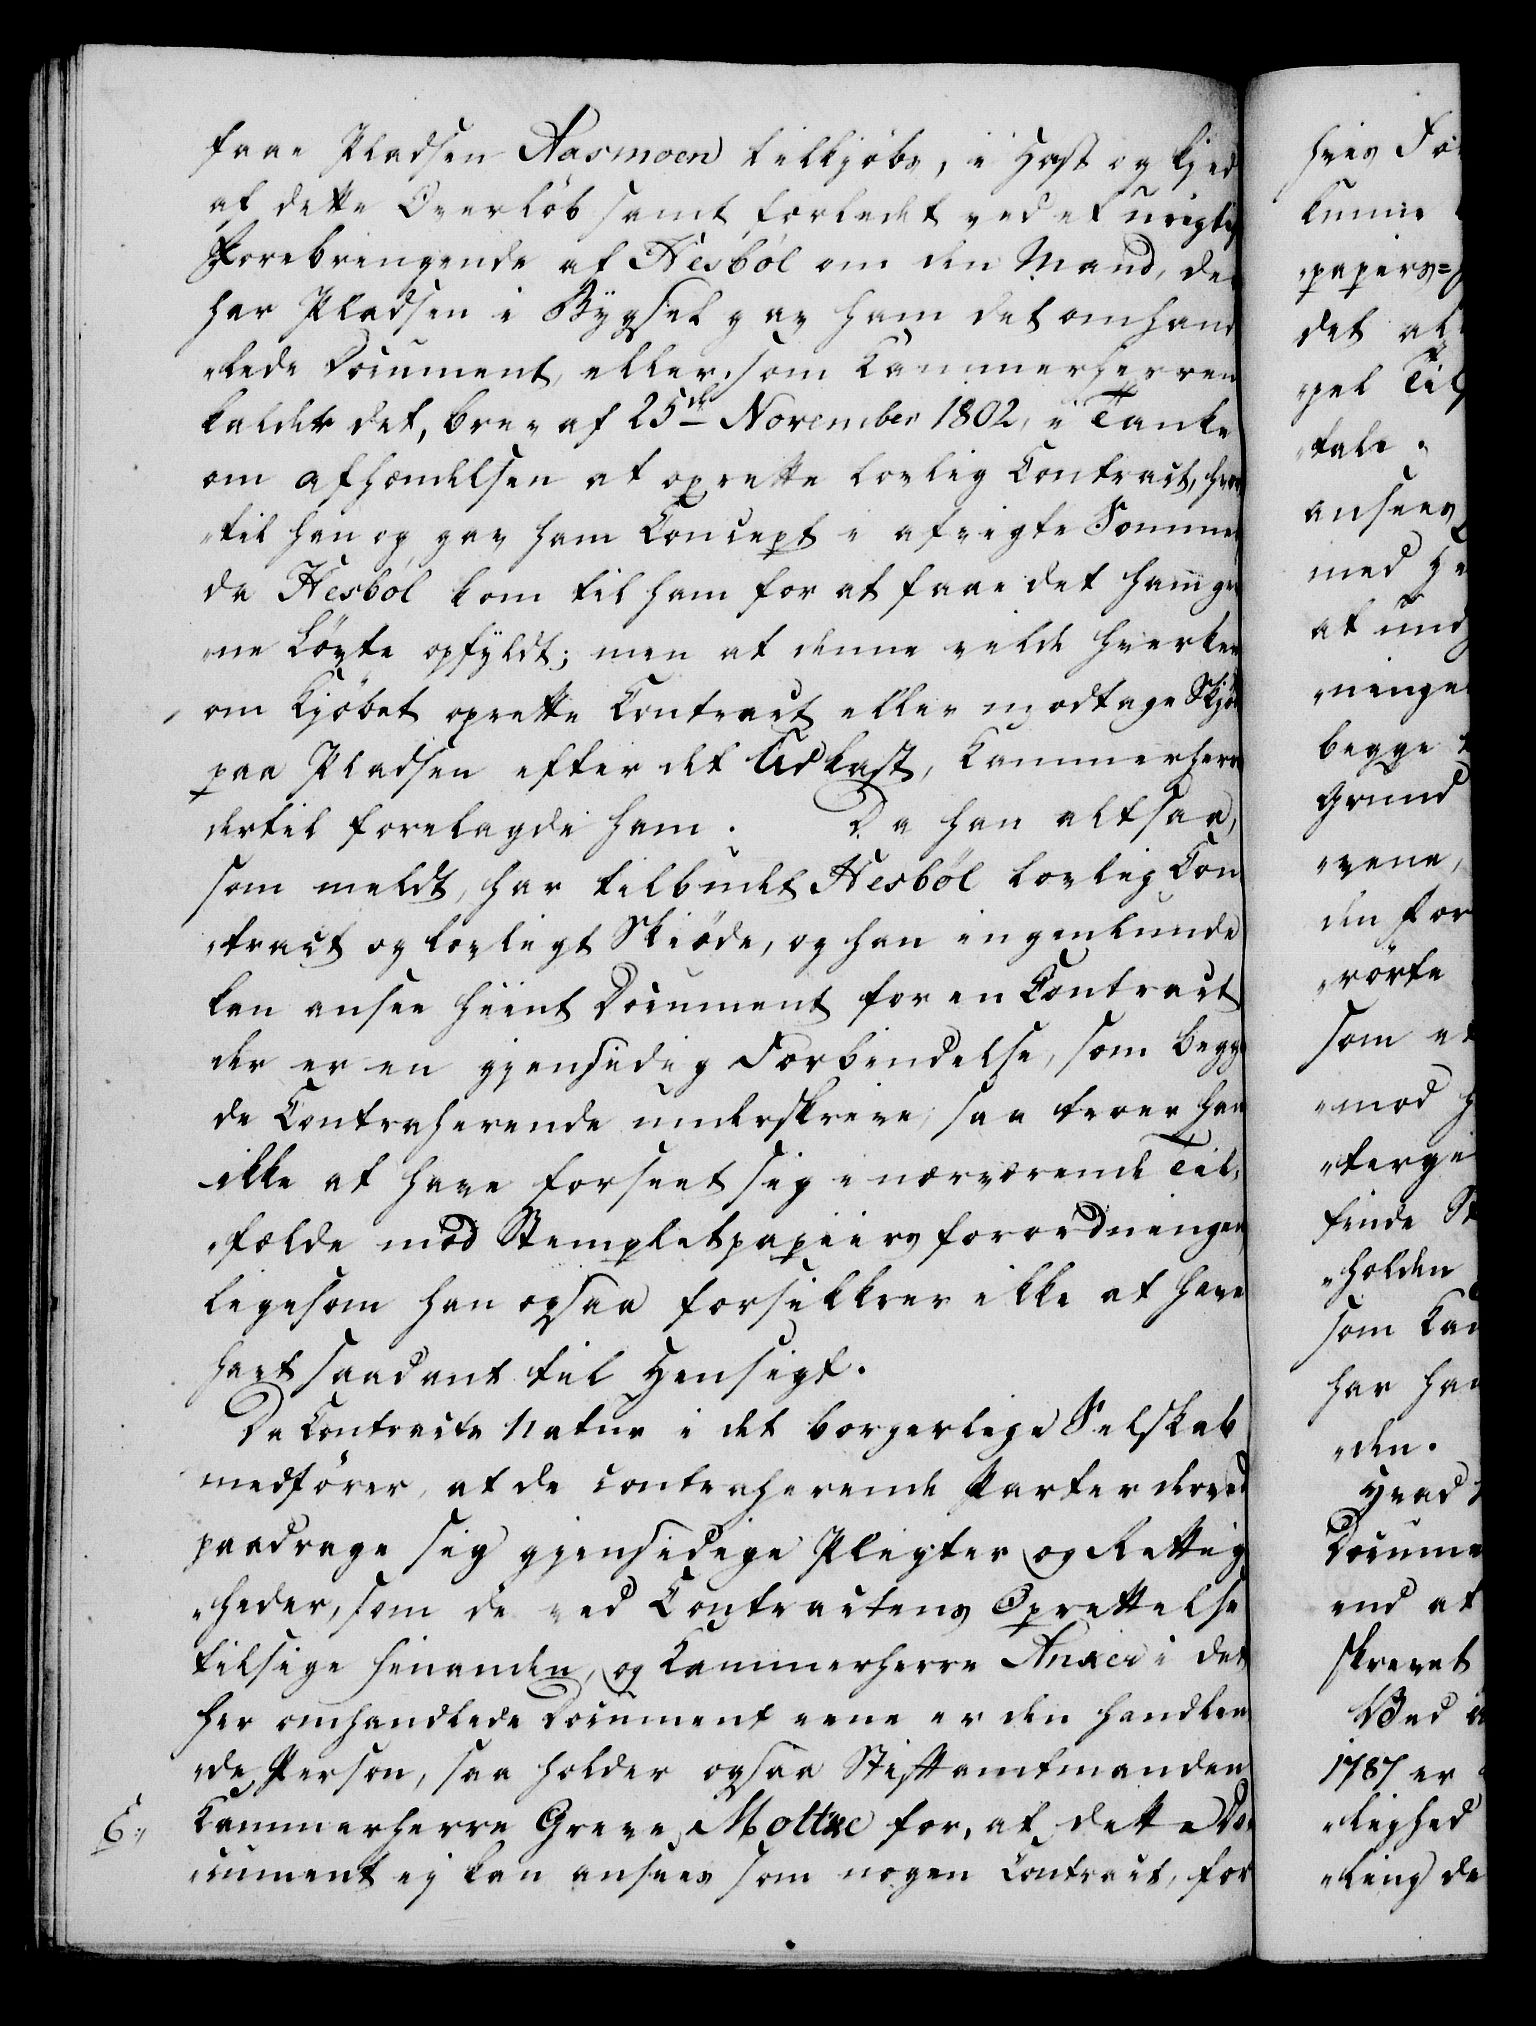 faae Pladsen Aasmoen tilkjøbs, i Hast og kjed
af dette Overløb samt forledet ved et urigtig
Forebringende af Hesbøl om den Mand, der
har Pladsen i Bygsel gav ham det omhand
„lede Document, eller som Kammerherren
kalder det, brev af 25de November 1802, i Tanke
om afhændelsen at oprette lovlig Contract, hvor
„til han og gav ham Concept i afvigte Sommer
da Hesbøl kom til ham for at faae det ham giv
„ne Løvte opfyldt; men at denne vilde hverken
om Kjøbet oprette Contract eller modtage Skjø
paa Pladsen efter det Udkast, Kammerherr
dertil forelagde ham. Da han altsaa,
som meldt, har tilbudet Hesbøl lovlig Con
„tract og lovligt Skiøde, og han ingenlunde
kan ansee hiint Document for en Contract
der er en gjensidig Forbindelse, som begge
de Contraherende underskrive, saa troer han
ikke at have forseet sig i nærværende Til„
„fælde mod Stempletpapiirs forordningen
ligesom han ogsaa forsikkrer ikke at have
havt saadant til Hensigt.
Da Contracts Natur i det borgerlige Selskab
medfører, at de contraherende Parter derved
paadrage sig gjensidige Pligter og Rettig
„heder, som de ved Contractens Oprettelse
tilsige hinanden, og Kammerherre Anker i det
her omhandlede Document eene er den handlen
„de Person, saa holder ogsaa Stiftamtmanden
Kammerherre Greve Moltke for, at dette Do
„cument ej kan ansees som nogen Contract, for
hvis
kunne
„papiirs=
det
„pel
„tale.
ansees
med
at und
„ninge
begge
Grund
„vene,
den for
„rørte
som et
„mod
„tergi
finde
„holden
som
har
„den.
Hvad
Docume
end at
skrevet
Ved
1787 er
„lighed
„ling de